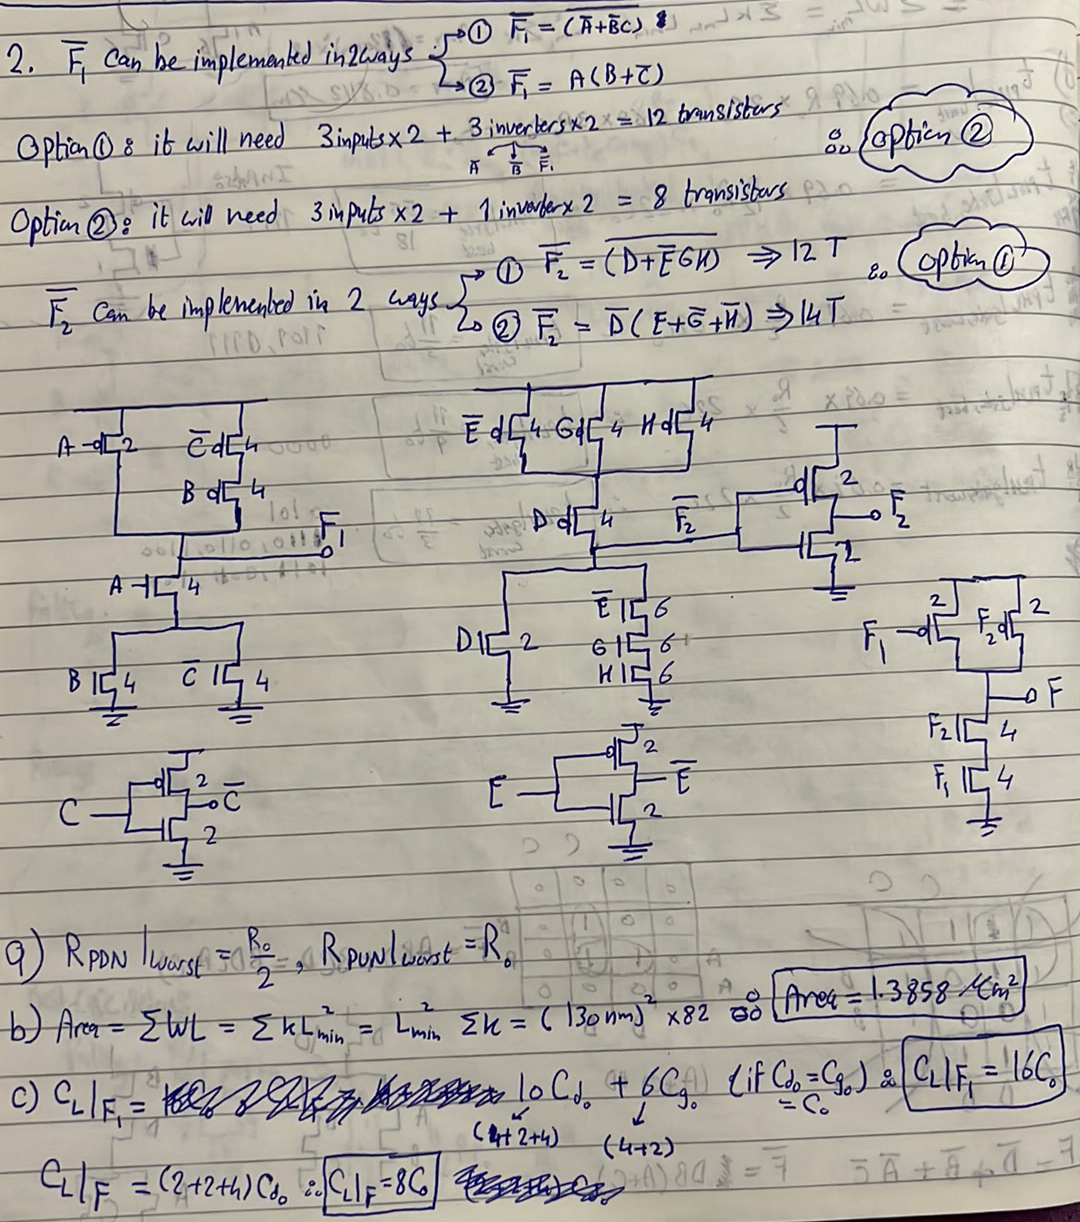 2. F̅₁ Can be implemented in 2 ways ① F̅₁ = (A̅+B̅C)‾
② F̅₁ = A(B+C̅)
Option ① : it will need 3 inputs×2 + 3 inverters×2 = 12 transistors
A̅ B̅ F̅₁
∴ Option ②
Option ②: it will need 3 inputs ×2 + 1 inverter×2 = 8 transistors
F̅₂ Can be implemented in 2 ways ① F̅₂ = (D+E̅GH)‾ ⇒ 12 T ∴ Option ①
② F̅₂ = D̅(E+G̅+H̅) ⇒ 14T
A 2 C̅ 4
B 4
F̅₁
A 4
B 4 C̅ 4
E̅ 4 G 4 H 4
D 4 F̅₂
2 F₂
2
D 2 E̅ 6
G 6
H 6
F₁ 2 F₂ 2
F
F₂ 4
F₁ 4
C 2 C̅
2
E 2 E̅
2
a) R PDN |worst = R₀/2 , R PUN |worst = R₀
b) Area = ΣWL = Σ kL²min = L²min Σk = (130nm)² ×82 ∴ Area = 1.3858 μm²
c) CL|F₁ = 10 Cd₀ + 6Cg₀ (if Cd₀ = Cg₀ = C₀) ∴ CL|F₁ = 16C₀
(4+2+4) (4+2)
CL|F = (2+2+4) Cd₀ ∴ CL|F = 8C₀